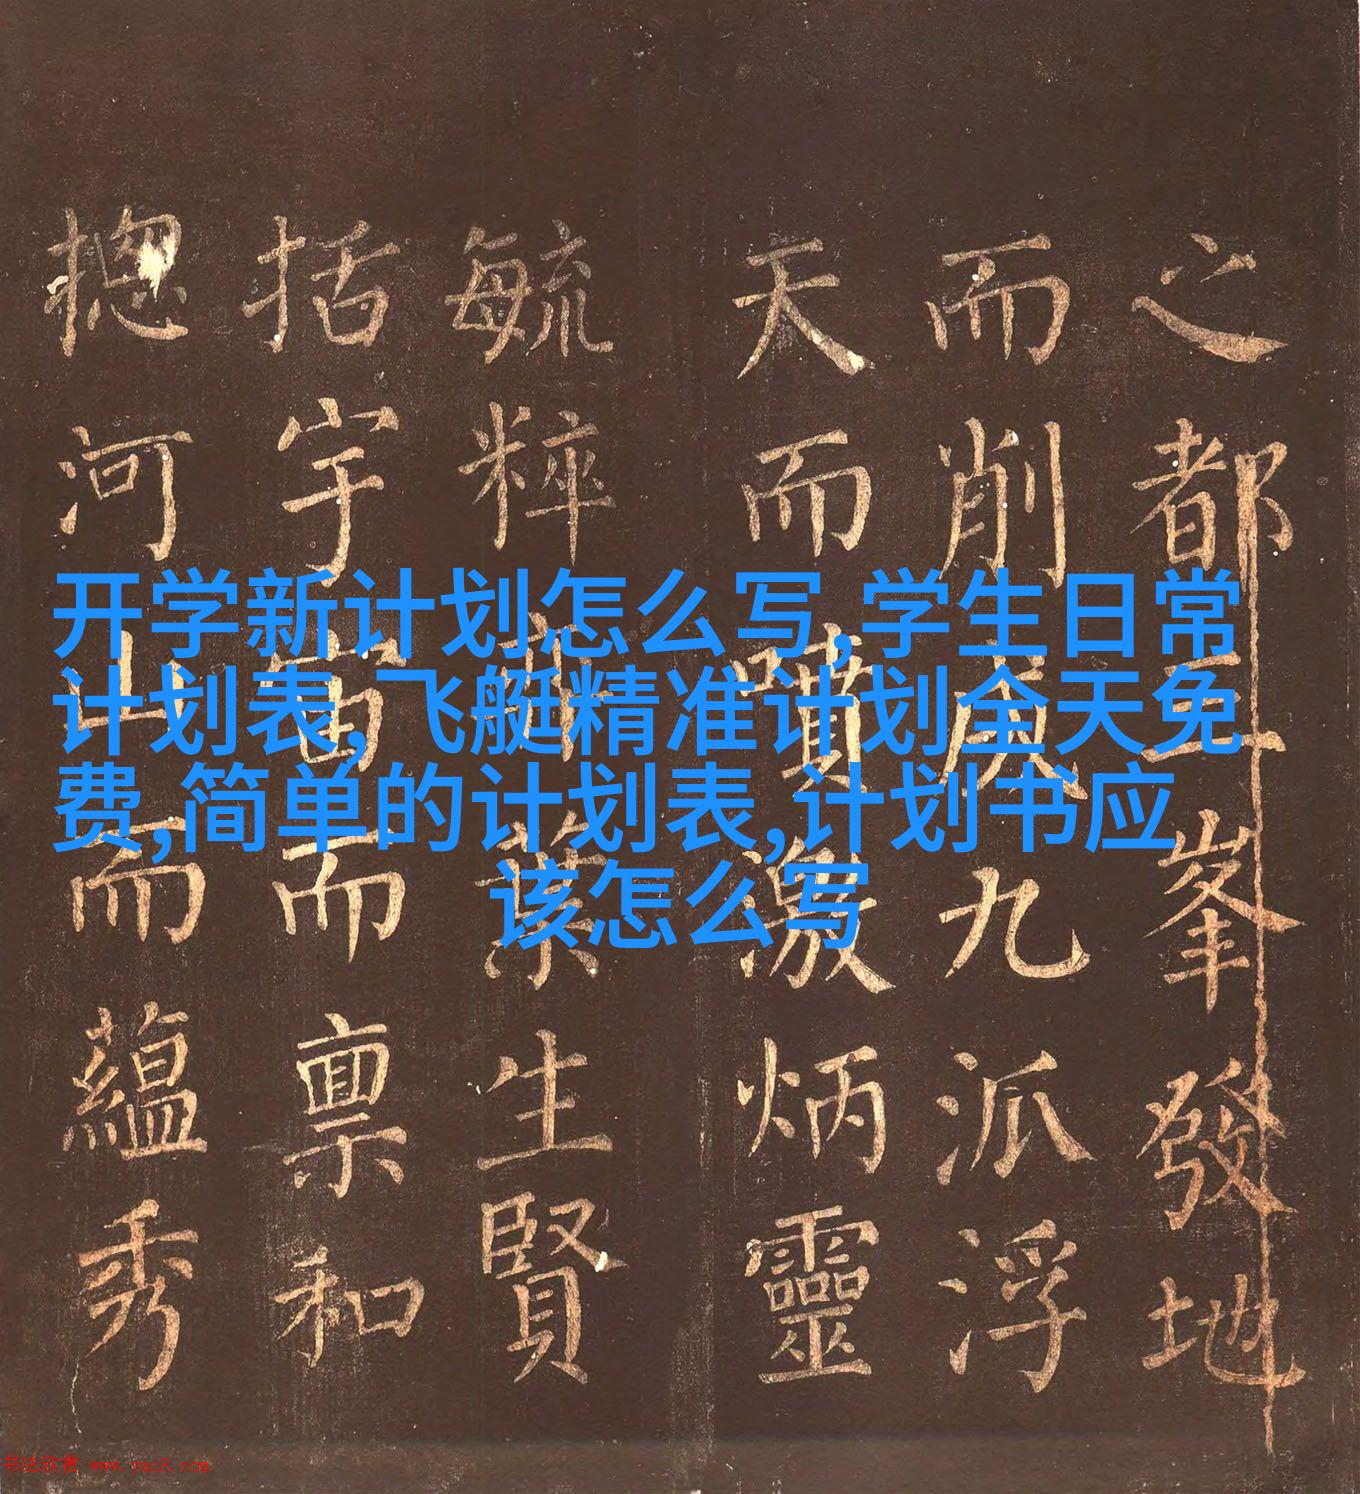 开学新计划怎么写,学生日常
计划表,飞艇精准计划全天免
费,简单的计划表,计划书应
该怎么写
之都五峯發地
而削成九派浮
天而噴激炳靈
毓粹葉生賢
括宇宙而禀和
揔河山而蘊秀
书法欣赏 www.yac8.com